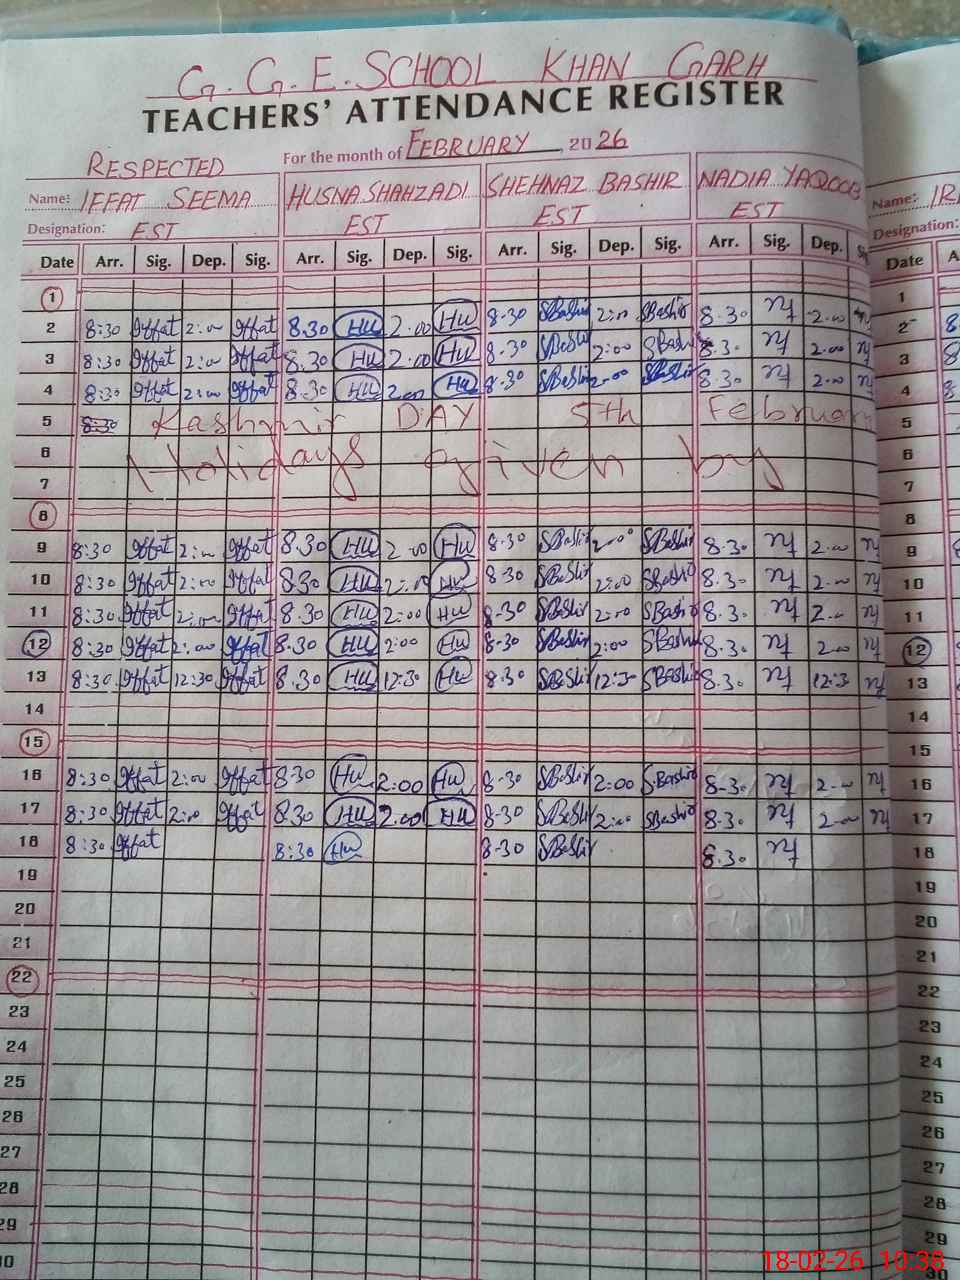 G.G.E.SCHOOL KHAN GARH
TEACHERS' ATTENDANCE REGISTER
For the month of FEBRUARY, 2026
RESPECTED
Name: IFFAT SEEMA HUSNA SHAHZADI SHEHNAZ BASHIR NADIA YAQOOB Name: IR
Designation: EST EST EST EST Designation:
Date Arr. Sig. Dep. Sig. Arr. Sig. Dep. Sig. Arr. Sig. Dep. Sig. Arr. Sig. Dep. Date A
1 1
2 8:30 Iffat 2:00 Iffat 8.30 Hu 2:00 Hu 8-30 SBashir 2:00 SBashir 8.30 NY 2.00 2
3 8:30 Iffat 2:00 Iffat 8.30 Hu 2.00 Hu 8-30 SBashir 2:00 SBashir 8.30 NY 2.00 NY 3
4 8:30 Iffat 2:00 Iffat 8.30 Hu 2.00 Hu 8-30 SBashir 2:00 SBashir 8.30 NY 2.00 NY 4
5 8:30 Kashmir DAY 5th February 5
6 Holidays given by 6
7 7
8 8
9 8:30 Iffat 2:00 Iffat 8.30 Hu 2:00 Hu 8-30 SBashir 2:00 SBashir 8.30 NY 2.00 NY 9
10 8:30 Iffat 2:00 Iffat 8.30 Hu 2:00 Hu 8-30 SBashir 2:00 SBashir 8.30 NY 2.00 NY 10
11 8:30 Iffat 2:00 Iffat 8.30 Hu 2:00 Hu 8-30 SBashir 2:00 SBashir 8.30 NY 2.00 NY 11
12 8:30 Iffat 2:00 Iffat 8.30 Hu 2:00 Hu 8-30 SBashir 2:00 SBashir 8.30 NY 2.00 NY 12
13 8:30 Iffat 12:30 Iffat 8.30 Hu 12:30 Hu 8-30 SBashir 12:30 SBashir 8.30 NY 12:30 NY 13
14 14
15 15
16 8:30 Iffat 2:00 Iffat 8-30 Hu 2:00 Hu 8-30 SBashir 2:00 S.Bashir 8-30 NY 2-00 NY 16
17 8:30 Iffat 2:00 Iffat 8.30 Hu 2.00 Hu 8-30 SBashir 2:00 SBashir 8-30 NY 2-00 NY 17
18 8:30 Iffat 8:30 Hu 8-30 SBashir 8.30 NY 18
19 19
20 20
21 21
22 22
23 23
24 24
25 25
26 26
27 27
28 28
29 29
30 30
18-02-26 10:38